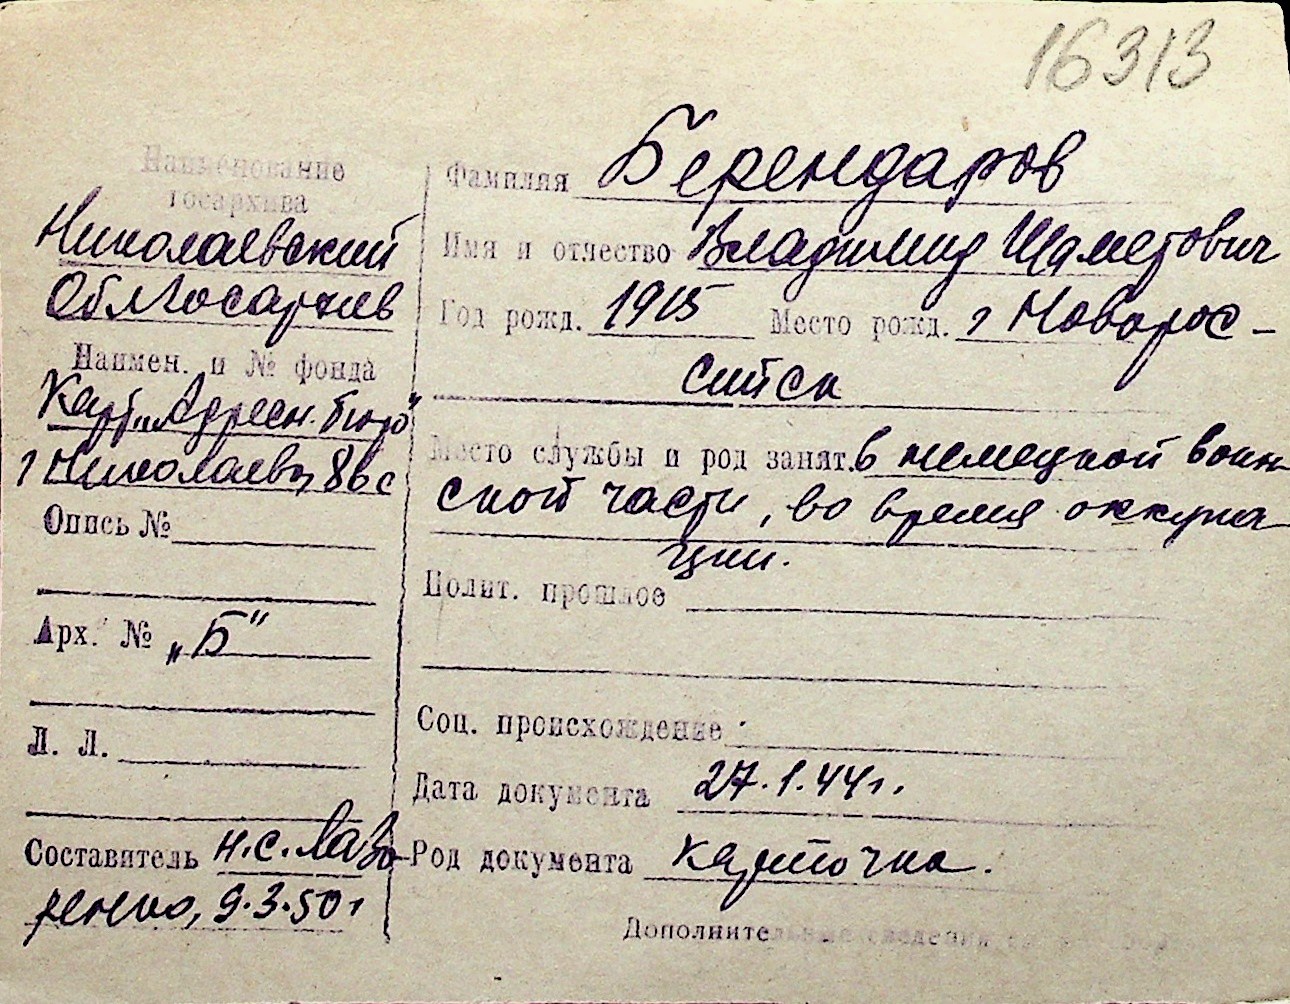 16313
Наименование
госархива
Николаевский
Облгосархив
Наимен. и № фонда
Карт. „Адресн. бюро"
г Николаева, 8вс
Опись №
Арх. № „Б"
Л. Л.
Составитель Н.С. Лазо-
ренко, 9.3.50 г
Фамилия Берендаров
Имя и отчество Владимир Шаметович
Год рожд. 1915 Место рожд. г Новорос-
сийск
Место службы и род занят. в немецкой воин-
ской части, во время оккупа-
ции.
Полит. прошлое
Соц. происхождение
Дата документа 27.1.44 г.
Род документа карточка.
Дополнительные сведения